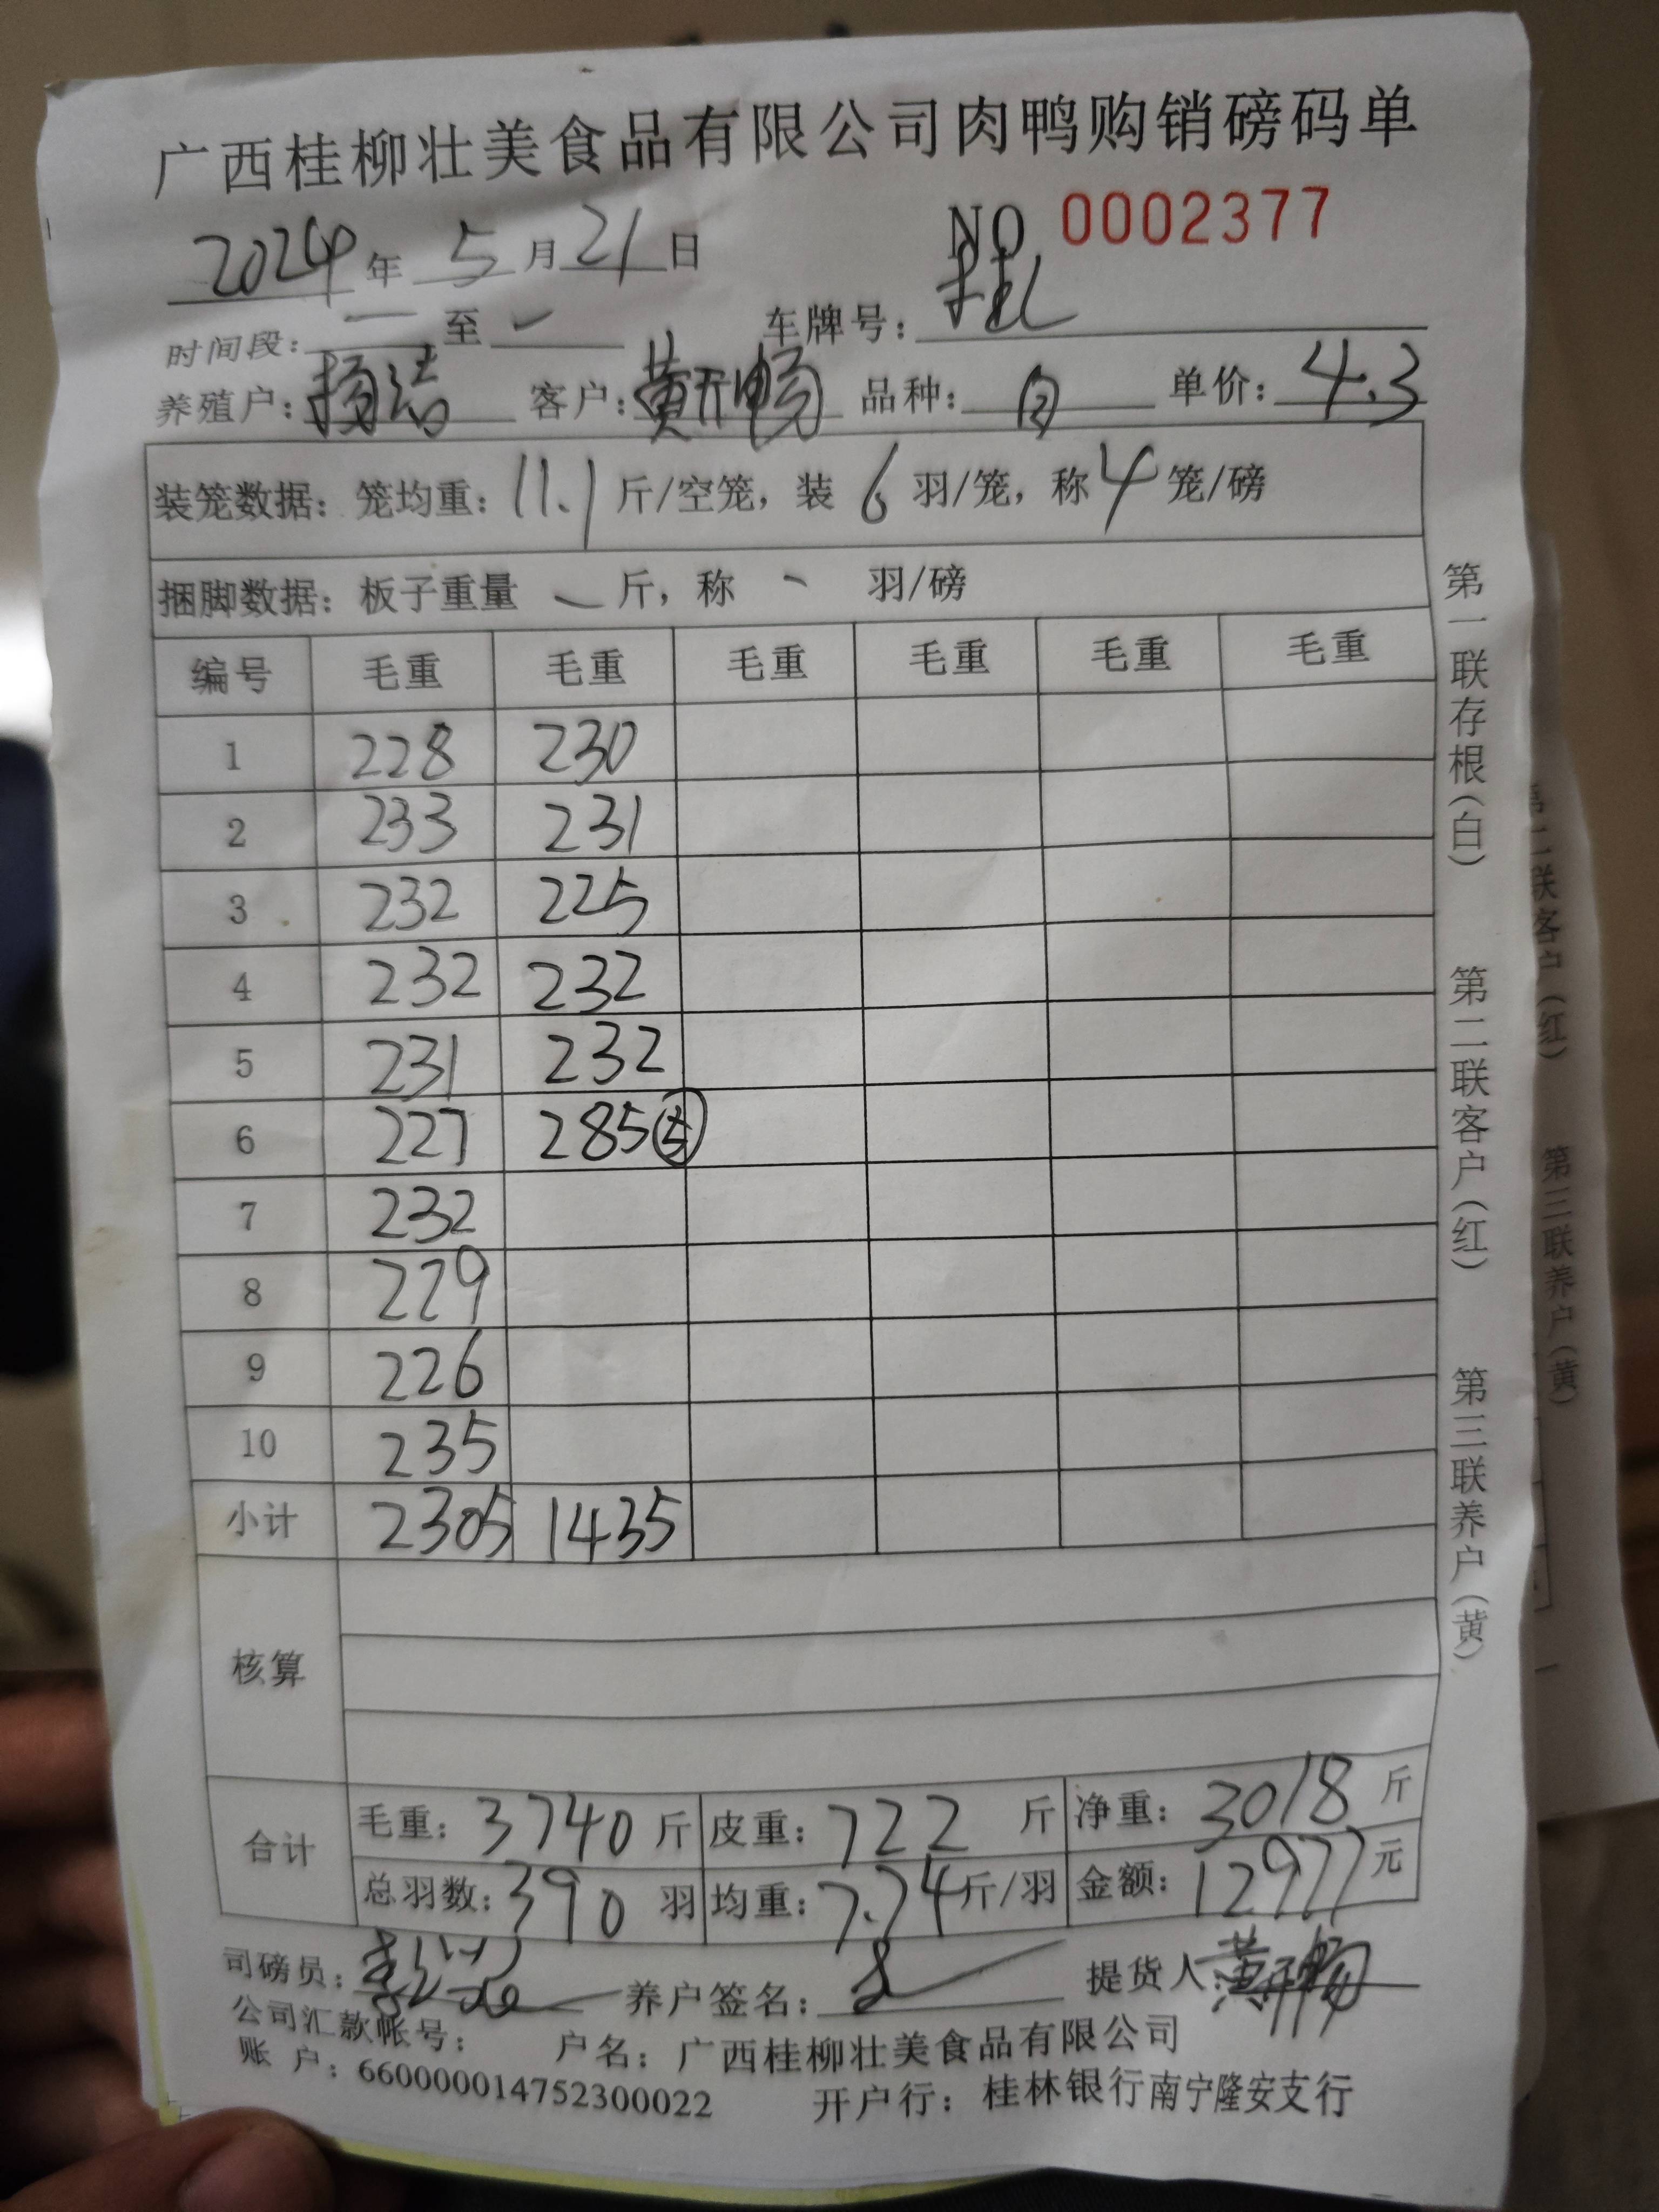 广西桂柳壮美食品有限公司肉鸭购销磅码单
NO 0002377
2024年 5月21日
时间段: 一 至 一 车牌号:
养殖户: 杨洁 客户: 黄开畅 品种: 白 单价: 4.3
装笼数据: 笼均重: 11.1 斤/空笼, 装 6 羽/笼, 称 4 笼/磅
捆脚数据: 板子重量 一 斤, 称 一 羽/磅
编号 毛重 毛重 毛重 毛重 毛重 毛重
1 228 230
2 233 231
3 232 225
4 232 232
5 231 232
6 227 285⑤
7 232
8 229
9 226
10 235
小计 2305 1435
核算
合计
毛重: 3740 斤 皮重: 722 斤 净重: 3018 斤
总羽数: 390 羽 均重: 7.74 斤/羽 金额: 12977 元
司磅员: 养户签名: 提货人: 黄开畅
公司汇款帐号: 户名: 广西桂柳壮美食品有限公司
账 户: 660000014752300022 开户行: 桂林银行南宁隆安支行
第一联存根(白) 第二联客户(红) 第三联养户(黄)
第二联客户(红) 第三联养户(黄)